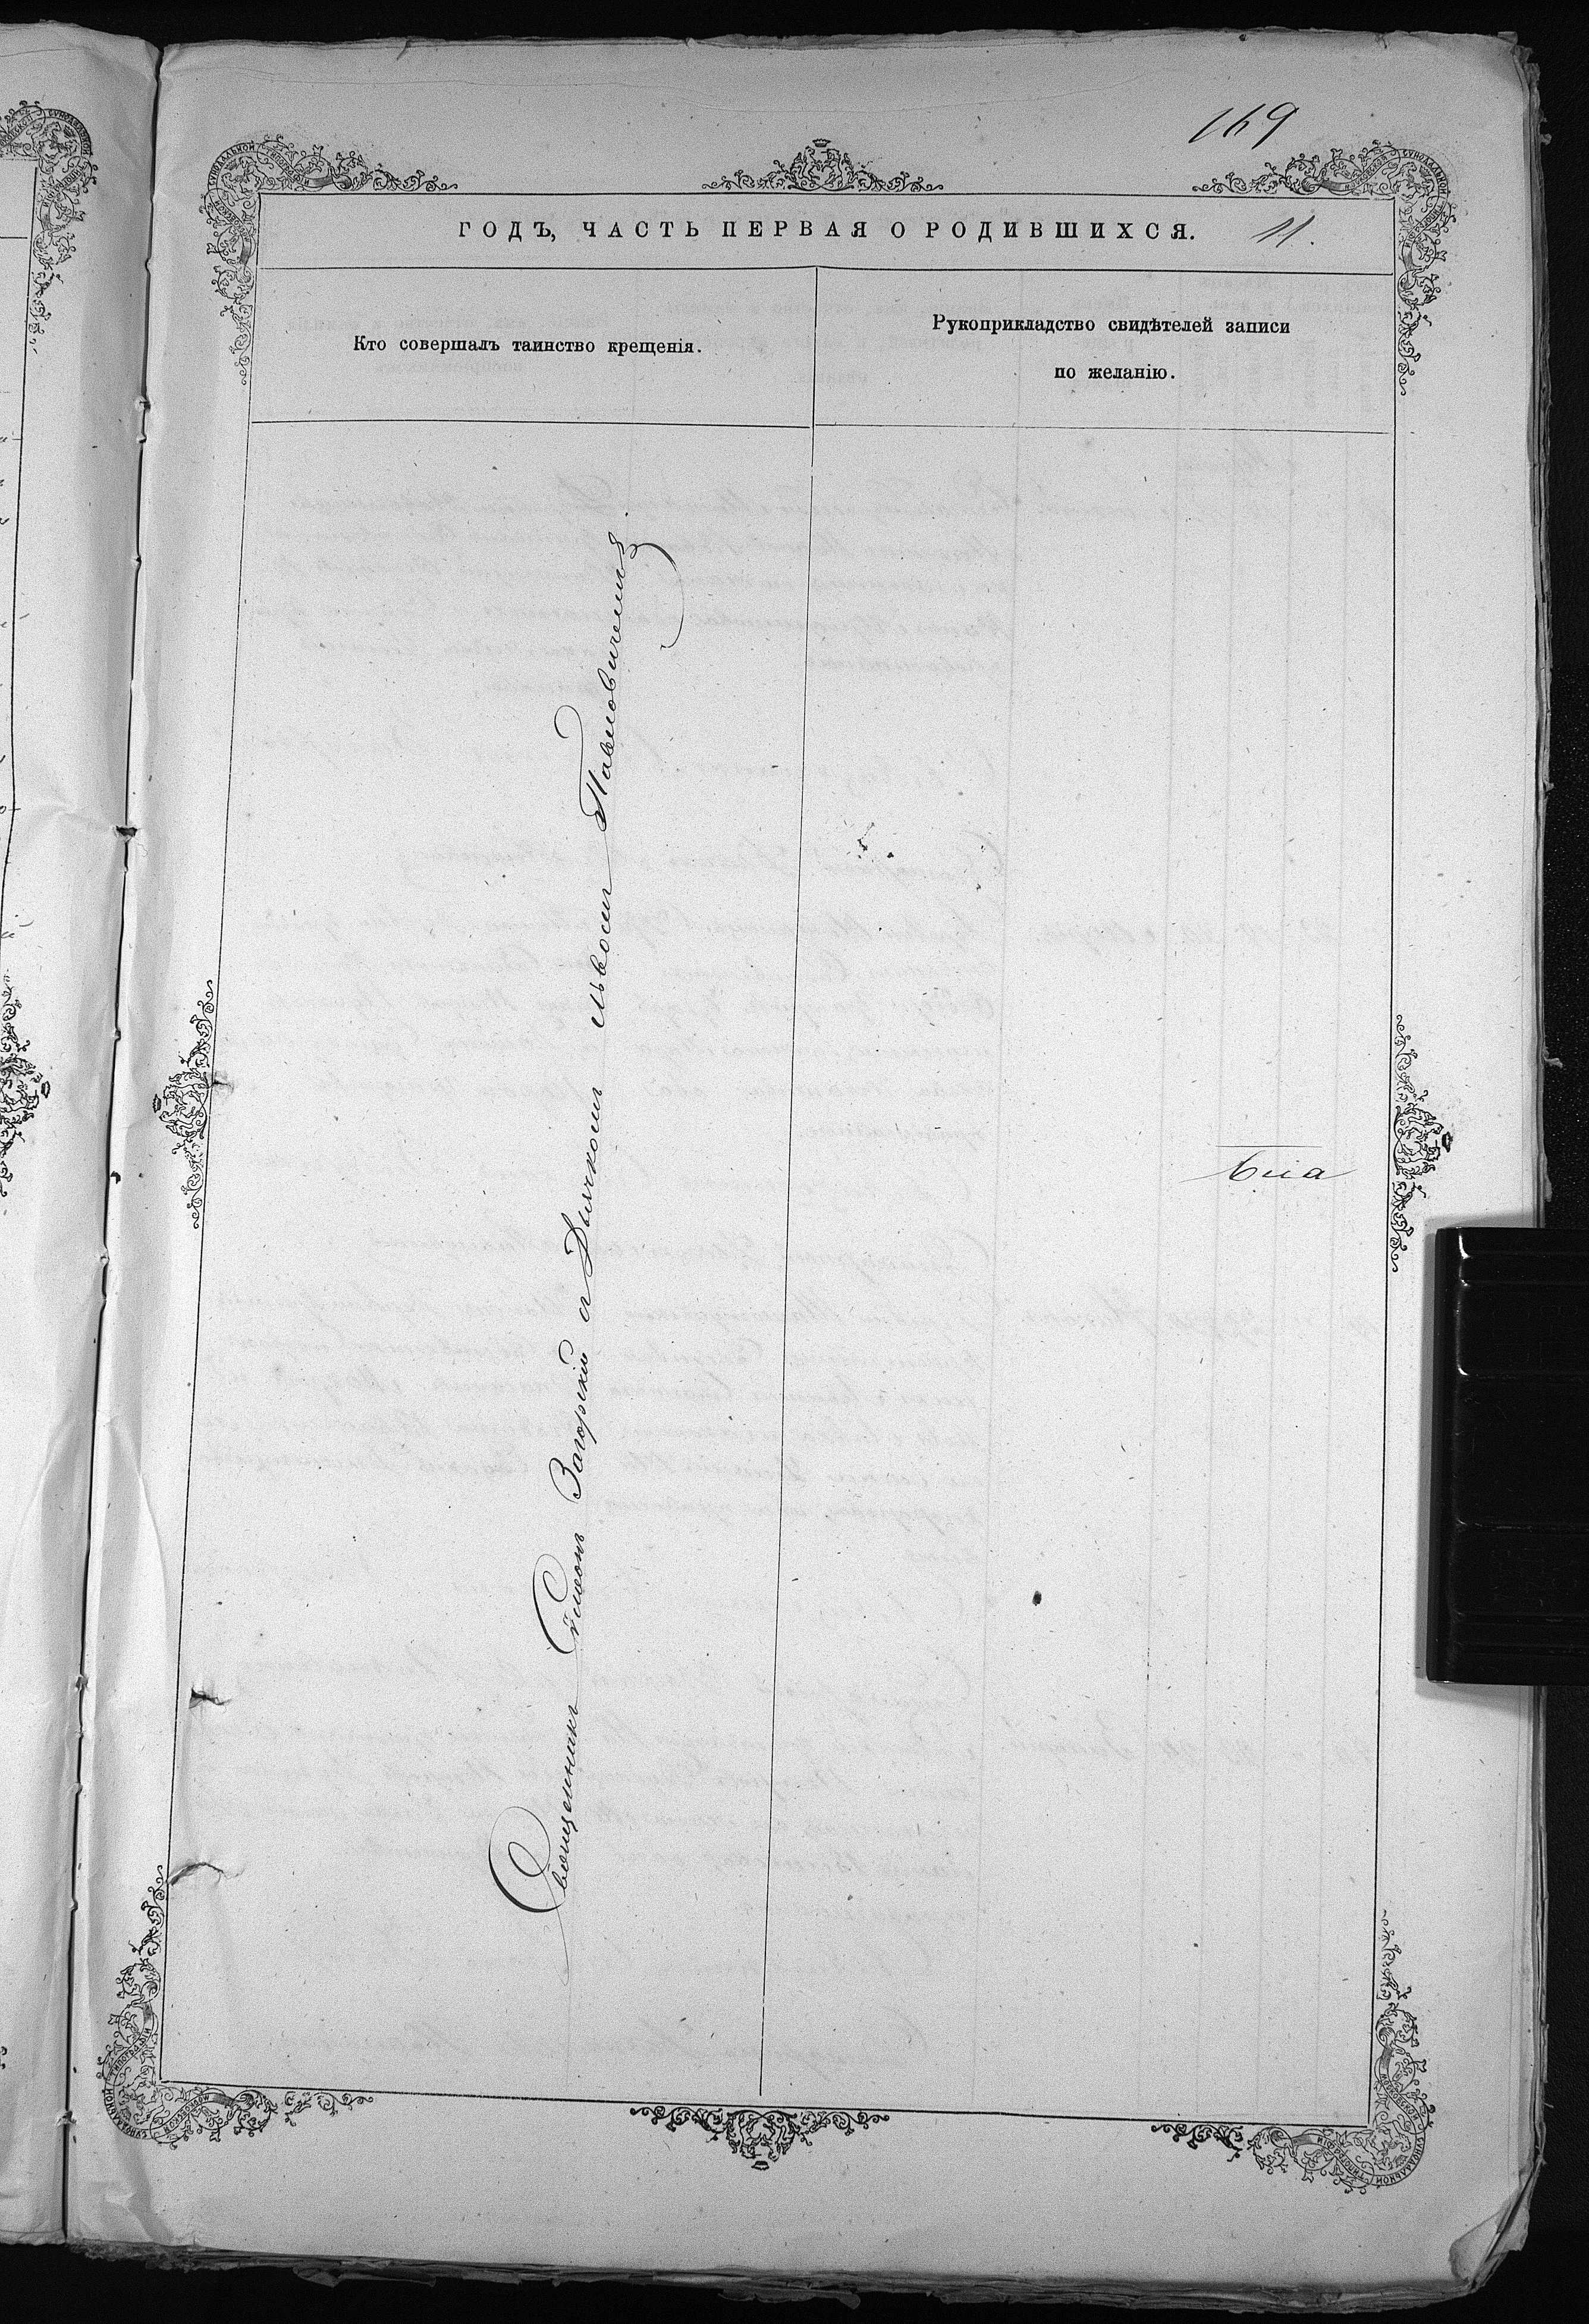 169
ГОДЪ, ЧАСТЬ ПЕРВАЯ О РОДИВШИХСЯ. 11.
Кто совершалъ таинство крещенія.
Рукоприкладство свидѣтелей записи
по желанію.
Священникъ Сѵмеонъ Загорскій съ Дьячкомъ Львомъ Павловичемъ